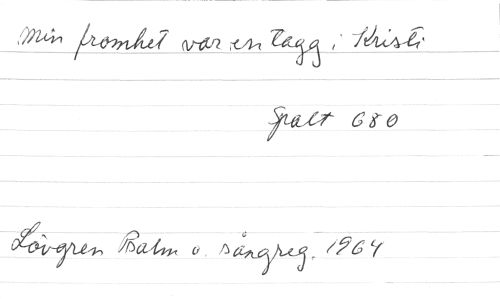 Min fromhet var en tagg i Kristi
Spalt 680
Lövgren Psalm o. sångreg. 1964